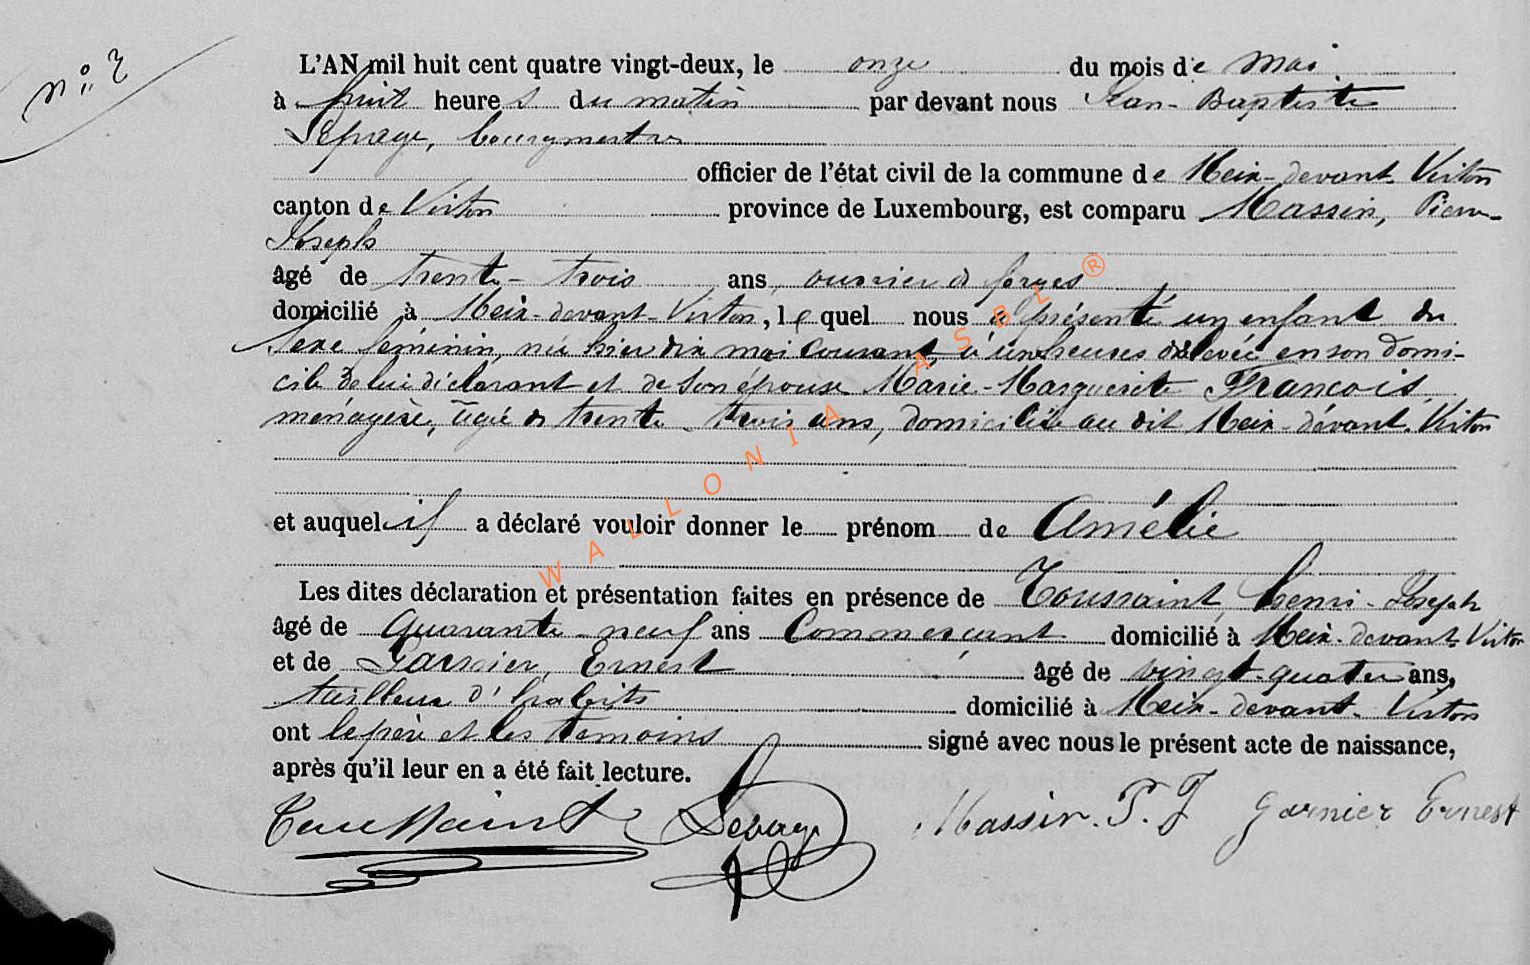 N° 2
L'AN mil huit cent quatre vingt-deux, le onze du mois de Mai
à huit heures du matin par devant nous Jean-Baptiste
Lepage, bourgmestre
officier de l'état civil de la commune de Meix-devant-Virton
canton de Virton province de Luxembourg, est comparu Massin, Pierre-
Joseph
âgé de trente-trois ans, ouvrier de forges
domicilié à Meix-devant-Virton, lequel nous a présenté un enfant du
sexe féminin, née hier dix mai courant, à heures relevée en son domi-
cile de lui déclarant et de son épouse Marie-Marguerite François,
ménagère, âgée de trente-trois ans, domiciliée au dit Meix-dévant-Virton
et auquel il a déclaré vouloir donner le prénom de Amélie
Les dites déclaration et présentation faites en présence de Toussaint, Henri-Joseph
âgé de Quarante-neuf ans Commerçant domicilié à Meix-devant-Virton
et de Garnier, Ernest âgé de vingt-quatre ans,
tailleur d'habits domicilié à Meix-devant-Virton
ont le père et les témoins signé avec nous le présent acte de naissance,
après qu'il leur en a été fait lecture.
Toussaint Lepage Massin. P. J Garnier Ernest
WALLONIA ASBL ®